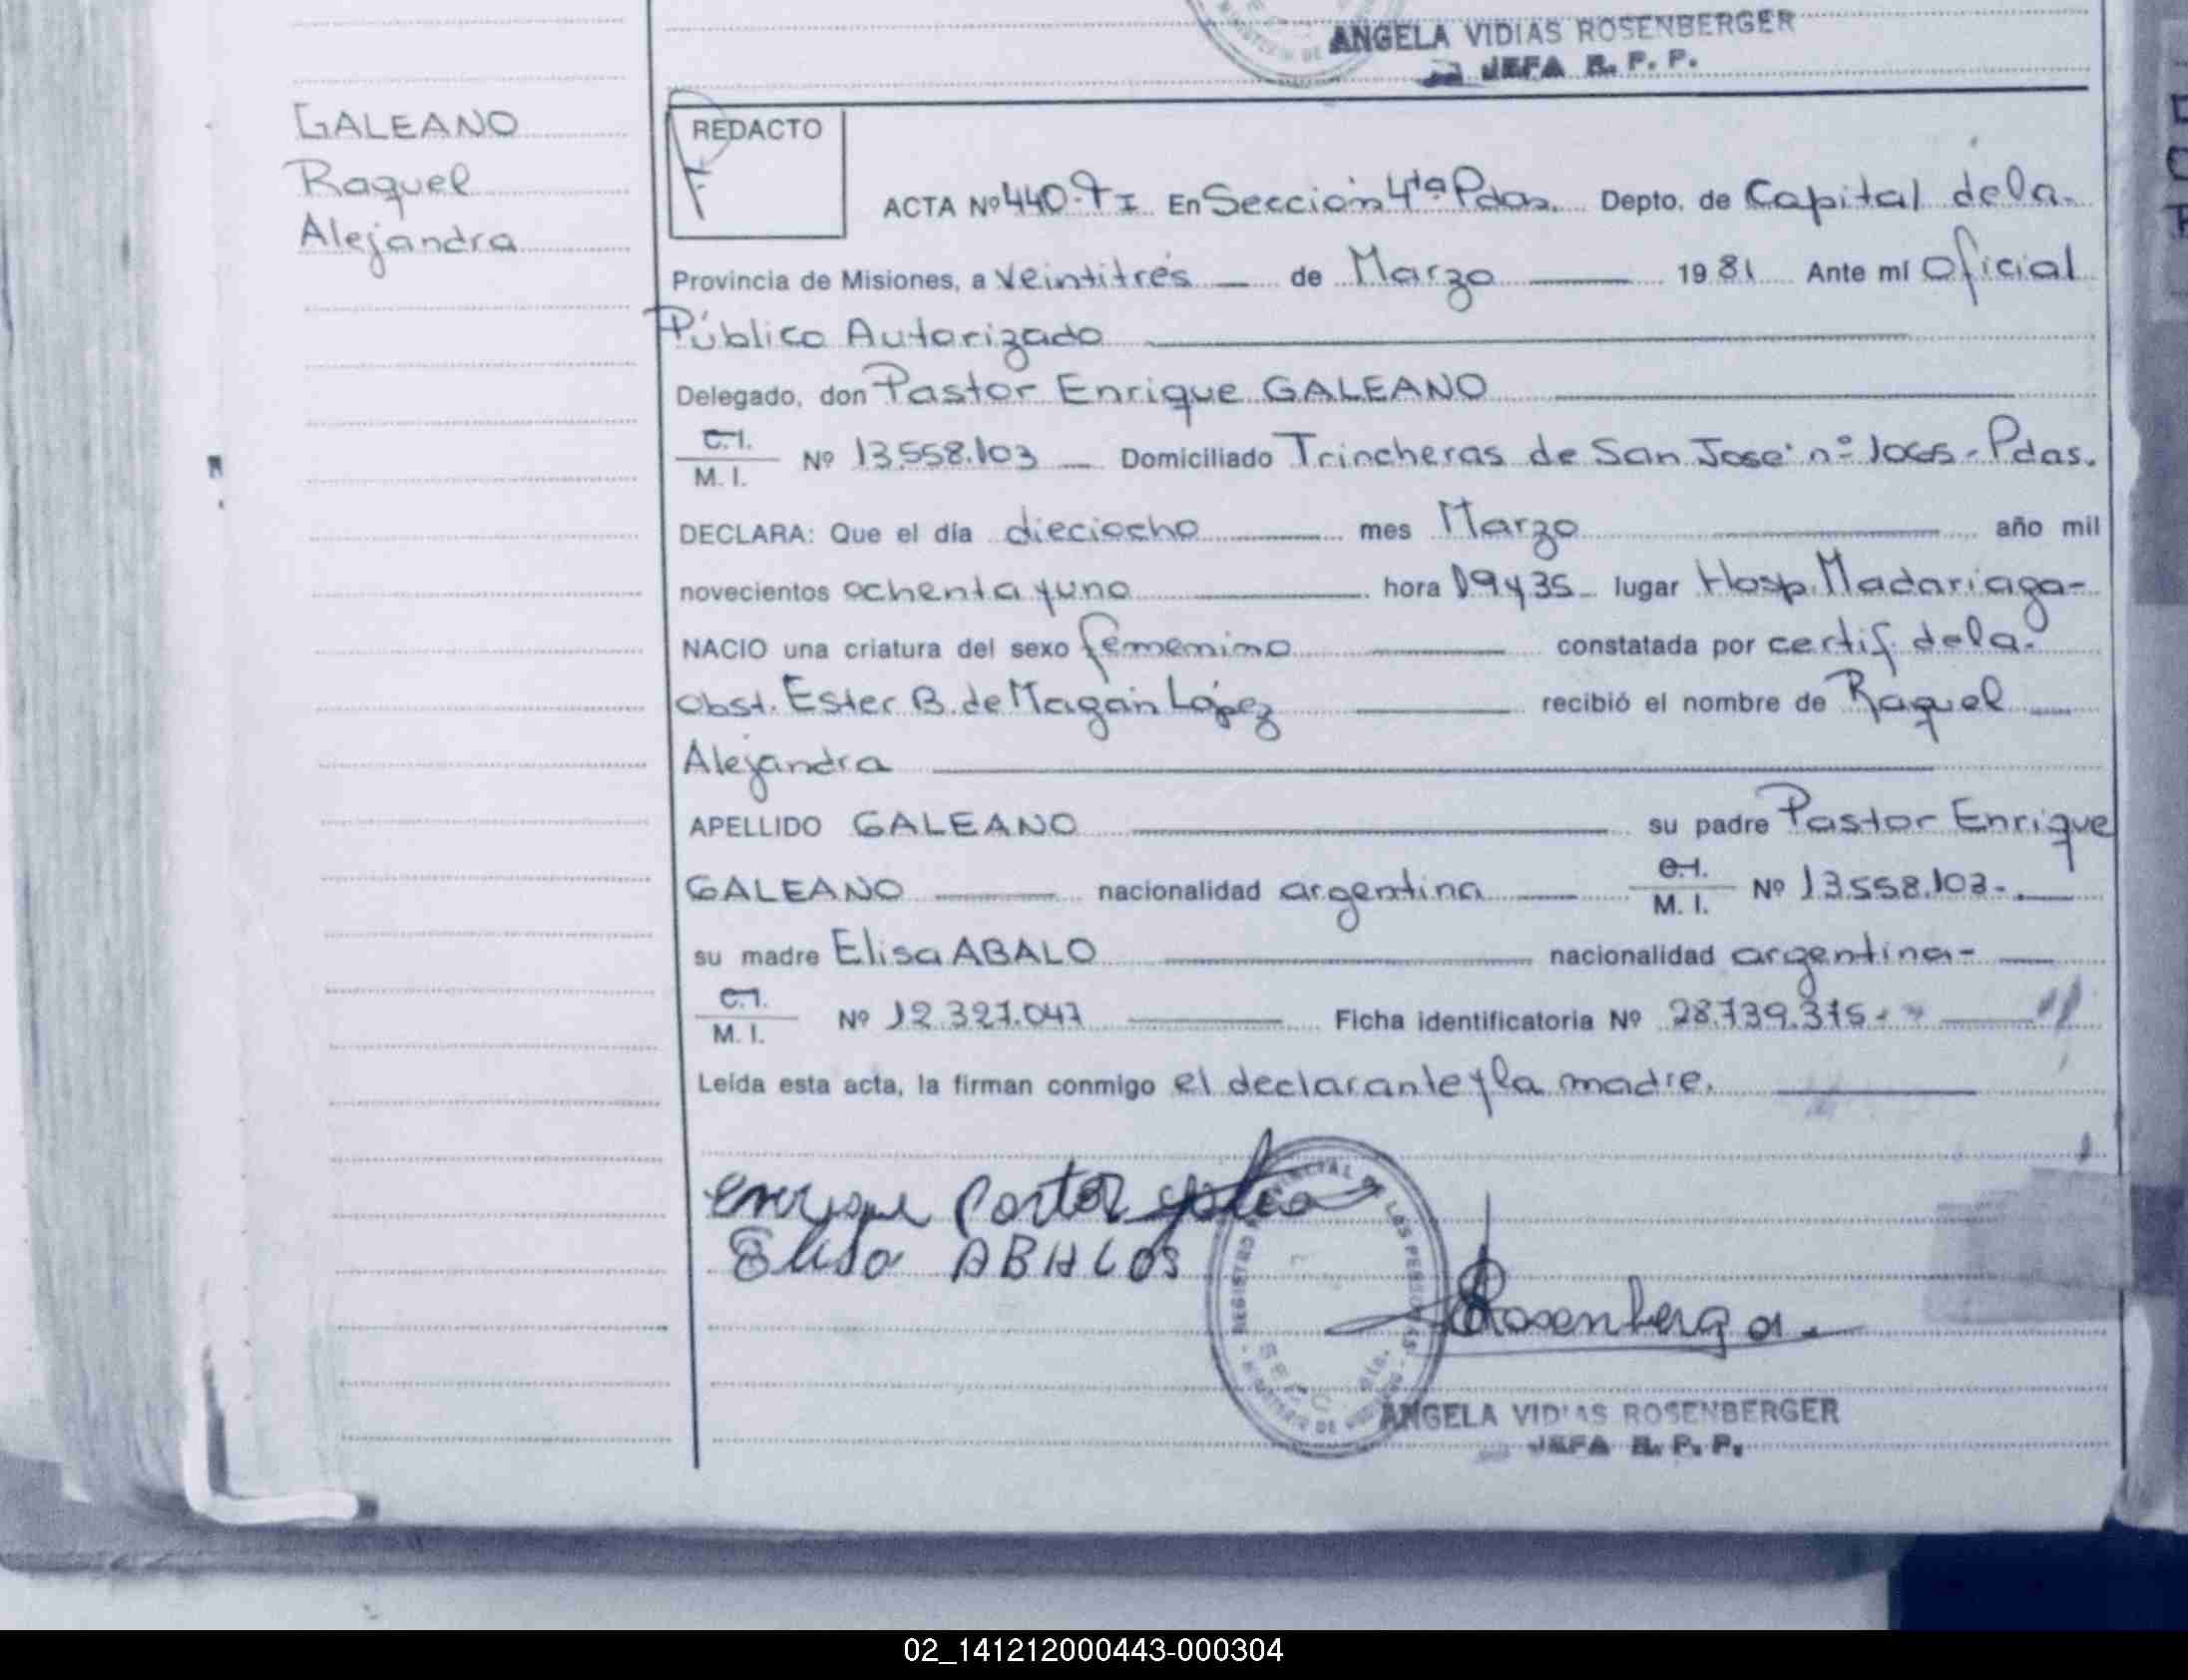 ANGELA VIDIAS ROSENBERGER
JEFA R. P. P.
GALEANO
Raquel
Alejandra
REDACTO
F
ACTA Nº 440-TI En Sección 4ta Pdas. Depto. de Capital de la
Provincia de Misiones, a Veintitrés de Marzo 1981 Ante mí Oficial
Público Autorizado
Delegado, don Pastor Enrique GALEANO
C.I.
M. I. Nº 13.558.103 Domiciliado Trincheras de San José nº 1065 - Pdas.
DECLARA: Que el día dieciocho mes Marzo año mil
novecientos ochenta y uno hora 19 y 35 lugar Hosp. Madariaga-
NACIO una criatura del sexo femenino constatada por certif. de la
Obst. Ester B. de Magán López recibió el nombre de Raquel
Alejandra
APELLIDO GALEANO su padre Pastor Enrique
GALEANO nacionalidad argentina C.I. M. I. Nº 13.558.103-
su madre Elisa ABALO nacionalidad argentina-
C.I.
M. I. Nº 12.327.047 Ficha identificatoria Nº 28.739.315-
Leída esta acta, la firman conmigo el declarante y la madre.
Enrique Pastor
Elisa ABALOS
REGISTRO PROVINCIAL DE LAS PERSONAS
SECC. 4ta.
MINISTERIO DE GOBIERNO
Rosenberger
ANGELA VIDIAS ROSENBERGER
JEFA R. P. P.
02_141212000443-000304